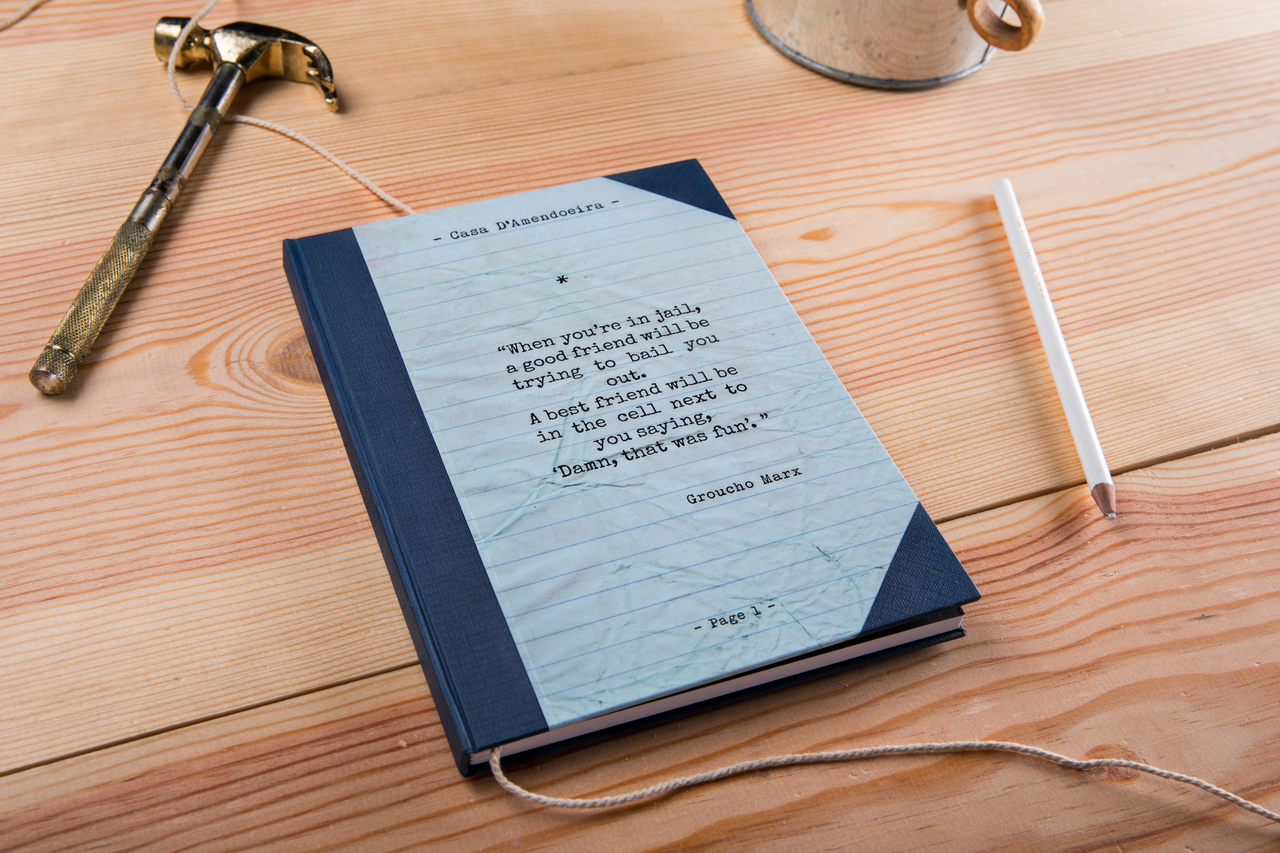 - Casa D'Amendoeira -
*
“When you're in jail,
a good friend will be
trying to bail you
out.
A best friend will be
in the cell next to
you saying,
‘Damn, that was fun'.”
Groucho Marx
- Page 1 -